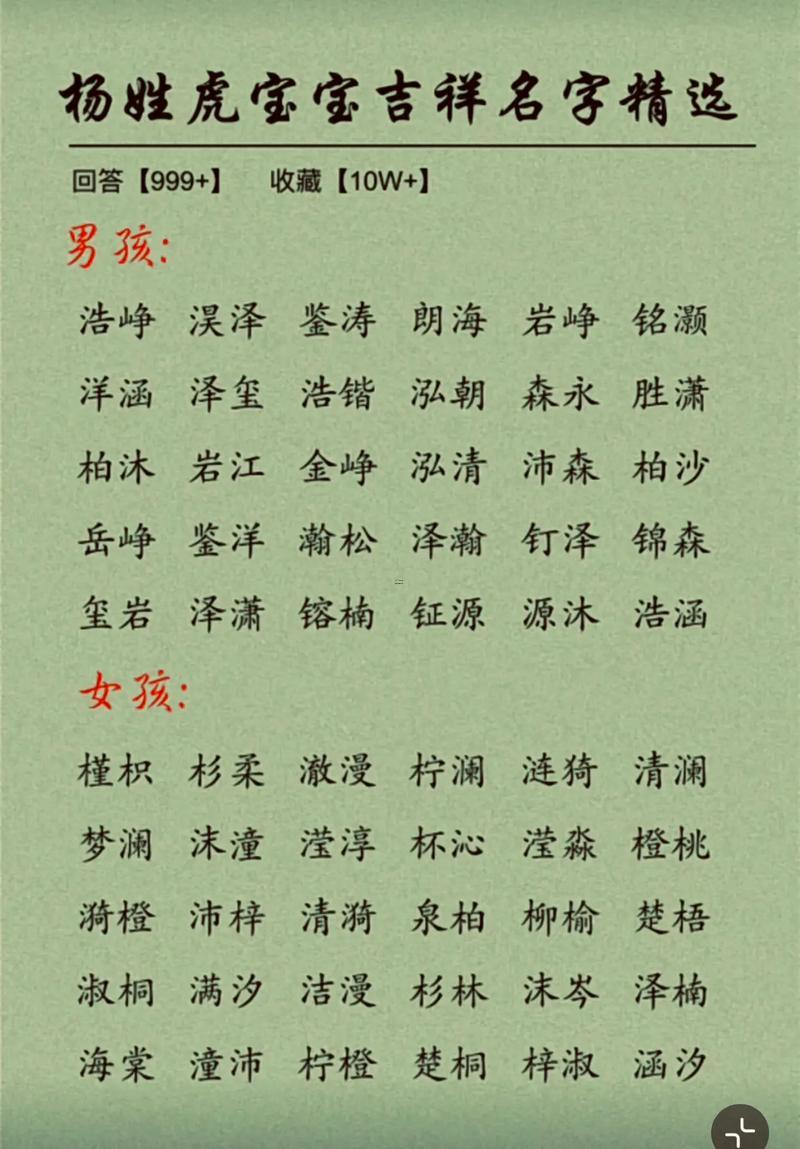 杨姓虎宝宝吉祥名字精选
回答【999+】 收藏【10W+】
男孩:
浩峥 淏泽 鉴涛 朗海 岩峥 铭灏
洋涵 泽玺 浩锴 泓朝 森永 胜潇
柏沐 岩江 金峥 泓清 沛森 柏沙
岳峥 鉴洋 瀚松 泽瀚 钉泽 锦森
玺岩 泽潇 镕楠 钲源 源沐 浩涵
女孩:
槿枳 杉柔 澈漫 柠澜 涟猗 清澜
梦澜 沫潼 滢淳 杯沁 滢淼 橙桃
漪橙 沛梓 清漪 泉柏 柳榆 楚梧
淑桐 满汐 洁漫 杉林 沫岑 泽楠
海棠 潼沛 柠橙 楚桐 梓淑 涵汐